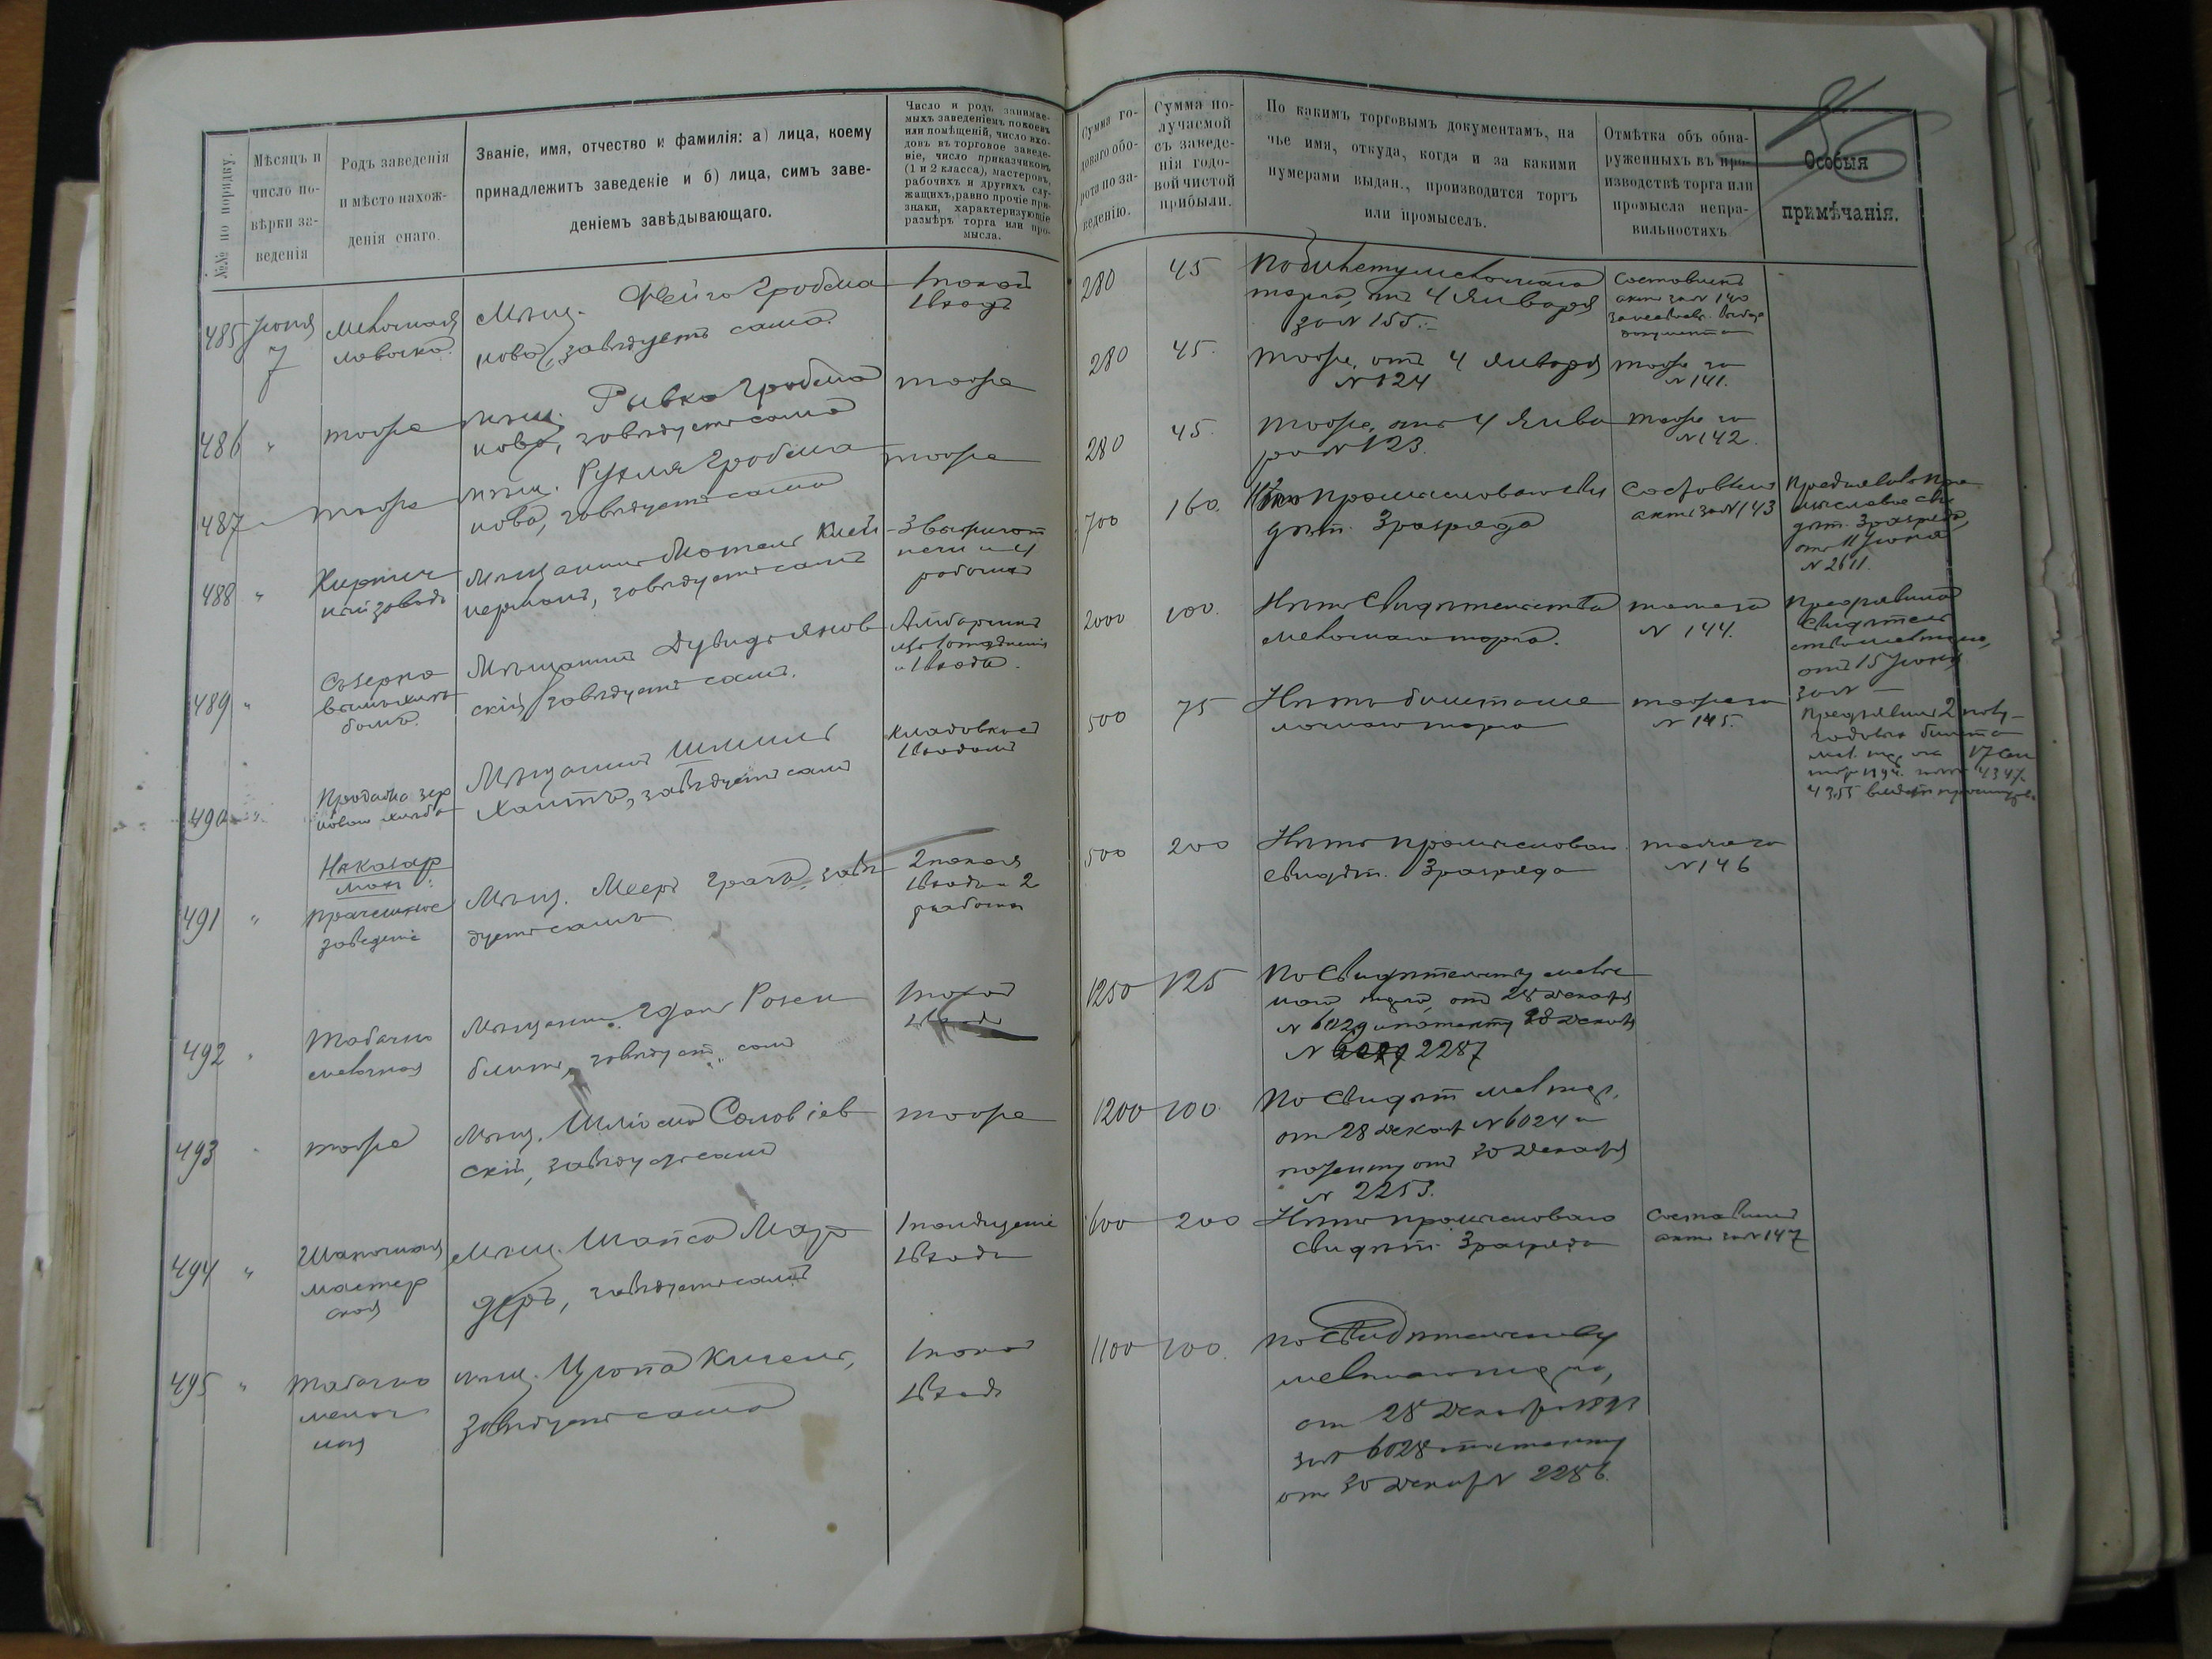 №№ по порядку.
Мѣсяцъ и
число по-
вѣрки за-
веденія
Родъ заведенія
и мѣсто нахож-
денія онаго.
Званіе, имя, отчество и фамилія: а) лица, коему
принадлежитъ заведеніе и б) лица, симъ заве-
деніемъ завѣдывающаго.
Число и родъ занимае-
мыхъ заведеніемъ покоевъ
или помѣщеній, число вхо-
довъ въ торговое заведе-
ніе, число приказчиковъ
(1 и 2 класса), мастеровъ,
рабочихъ и другихъ слу-
жащихъ, равно прочіе при-
знаки, характеризующіе
размѣръ торга или про-
мысла.
Сумма го-
доваго обо-
рота по за-
веденію.
Сумма по-
лучаемой
съ заведе-
нія годо-
вой чистой
прибыли.
По какимъ торговымъ документамъ, на
чье имя, откуда, когда и за какими
нумерами выдан., производится торгъ
или промыселъ.
Отмѣтка объ обна-
руженныхъ въ про-
изводствѣ торга или
промысла непра-
вильностяхъ
Особыя
примѣчанія.
485 Іюня 7
Мелочная
лавочка.
Мѣщ. Фейга Гробма
нова, завѣдуетъ сама.
1 покой
1 входъ
280
45
По билету мелочнаго
торга, отъ 4 Января
за № 155.
Составленъ
актъ за № 140
документа
486 "
тоже
Мѣщ. Рывка Гробма
нова, завѣдуетъ сама
тоже
280
45.
тоже, отъ 4 Января
№ 124
тоже за
№ 141.
487
тоже
мѣщ. Рухля Гробма
нова, завѣдуетъ сама
тоже
280
45.
тоже, отъ 4 Янва
ря № 123.
тоже за
№ 142.
488 "
Кирпич
ный заводъ
Мѣщанинъ Мотель Клей
нерманъ, завѣдуетъ самъ
печи и 4
рабочихъ
700
160.
промысловаго сви
дѣт. 3 разряда
Составленъ
актъ за № 143
Предъявилъ про
мысловое сви
дѣт. 3 разряда,
отъ 11 Іюня
№ 2611.
489 "
Мѣщанинъ Дувидъ Янов
скій, завѣдуетъ самъ.
и 1 входъ.
2000
100.
Нѣтъ свидѣтельства
мелочнаго торга.
№ 144.
Предъявилъ
свидѣтель
отъ 15 Іюня
за № —
490 "
Продажа зер
новаго хлѣба
Мѣщанинъ Шмиль
Хаитъ, завѣдуетъ самъ
Кладовка съ
1 входомъ
500
75
Нѣтъ билета ме
лочнаго торга
тоже за
№ 145.
Предъявилъ 2 полу-
годовыхъ билета
491 "
Прачешное
заведеніе
Мѣщ. Мееръ Грачъ, завѣ
дуетъ самъ
2 покоя
1 входъ и 2
рабочихъ
500
200
Нѣтъ промысловаго
свидѣт. 3 разряда
№ 146
492 "
Табачно
мелочная
Мѣщанинъ Розен
блитъ, завѣдуетъ самъ
1 покой
1 входъ
1250
125
По свидѣтельству мелоч
наго торга, отъ 28 Декабря
№ 6029 и патенту 28 Декабря
№ 2287
493 "
тоже
Мѣщ. Шліома Соловіев
скій, завѣдуетъ самъ
тоже
1200
100.
По свидѣт. мел. тор.
отъ 28 Декаб. № 6024 и
патенту отъ 30 Декабря
№ 2253.
494 "
Шапочная
мастер
ская
Мѣщ. Шапса Мар
деръ, завѣдуетъ самъ
1 помѣщеніе
1 входъ
600
200
Нѣтъ промысловаго
свидѣт. 3 разряда
Составленъ
актъ за № 147
495 "
Табачно
мелоч
ная
мѣщ. Цюпа Кигель,
завѣдуетъ сама
1 покой
1 входъ
1100
100.
По свидѣтельству
мелочнаго торга,
отъ 28 Декабря
за № 6028 и патенту
отъ 30 Декаб. № 2286.